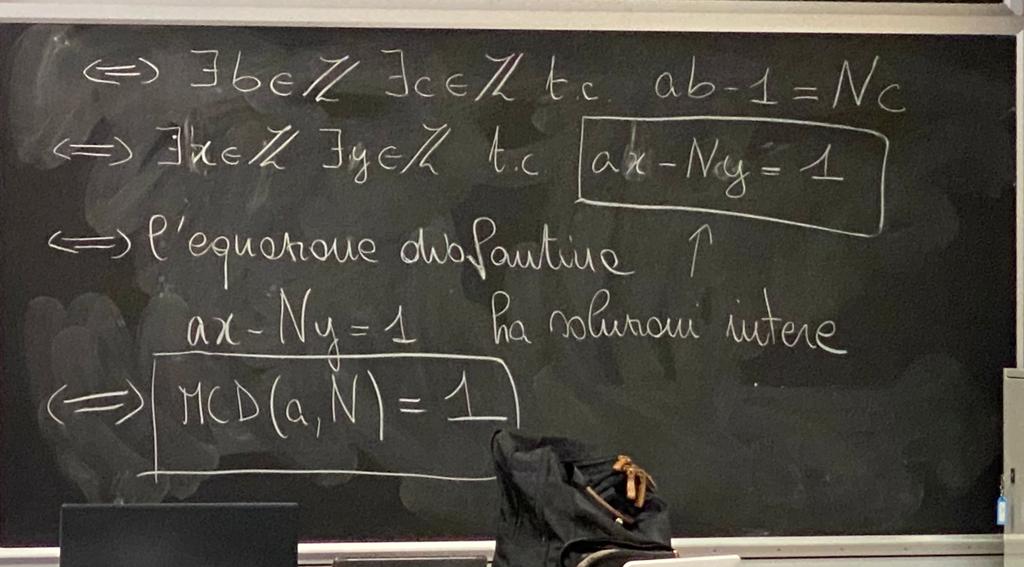 ⟺ ∃b∈ℤ ∃c∈ℤ t.c. ab-1=Nc
⟺ ∃x∈ℤ ∃y∈ℤ t.c ax-Ny=1
⟺ l'equazione diofantina ↑
ax-Ny=1 ha soluzioni intere
⟺ MCD(a,N)=1